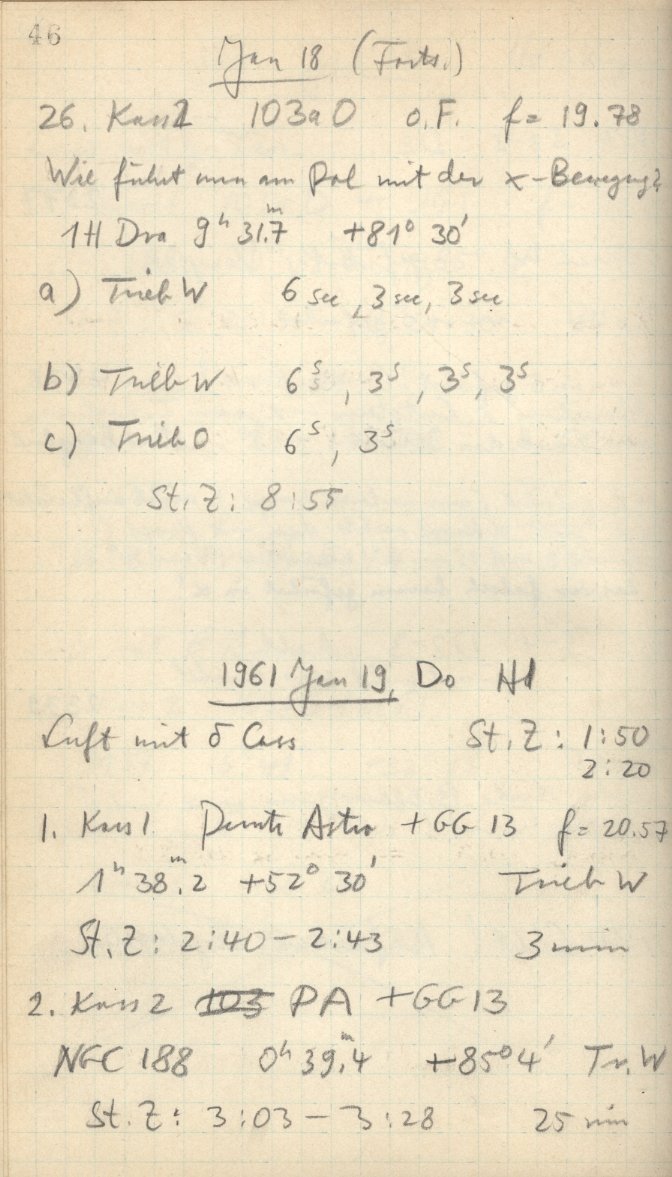 46
Jan 18 (Forts.)
26. Kass 2 103aO o.F. f= 19.78
Wie führt man am Pol mit der x-Bewegung?
1H Dra 9ʰ 31.ᵐ7 +81° 30'
a) Trieb W 6 sec, 3 sec, 3 sec
b) Trieb W 6ˢ, 3ˢ, 3ˢ, 3ˢ
c) Trieb O 6ˢ, 3ˢ
St. Z: 8:55
1961 Jan 19, Do
Luft mit δ Cass St. Z: 1:50
2:20
1. Kass 1 Astro + GG 13 f= 20.57
1ʰ 38.ᵐ2 +52° 30' Trieb W
St. Z: 2:40 – 2:43 3 min
2. Kass 2 103 PA + GG 13
NGC 188 0ʰ 39.ᵐ4 +85° 4' Tr. W
St. Z: 3:03 – 3:28 25 min